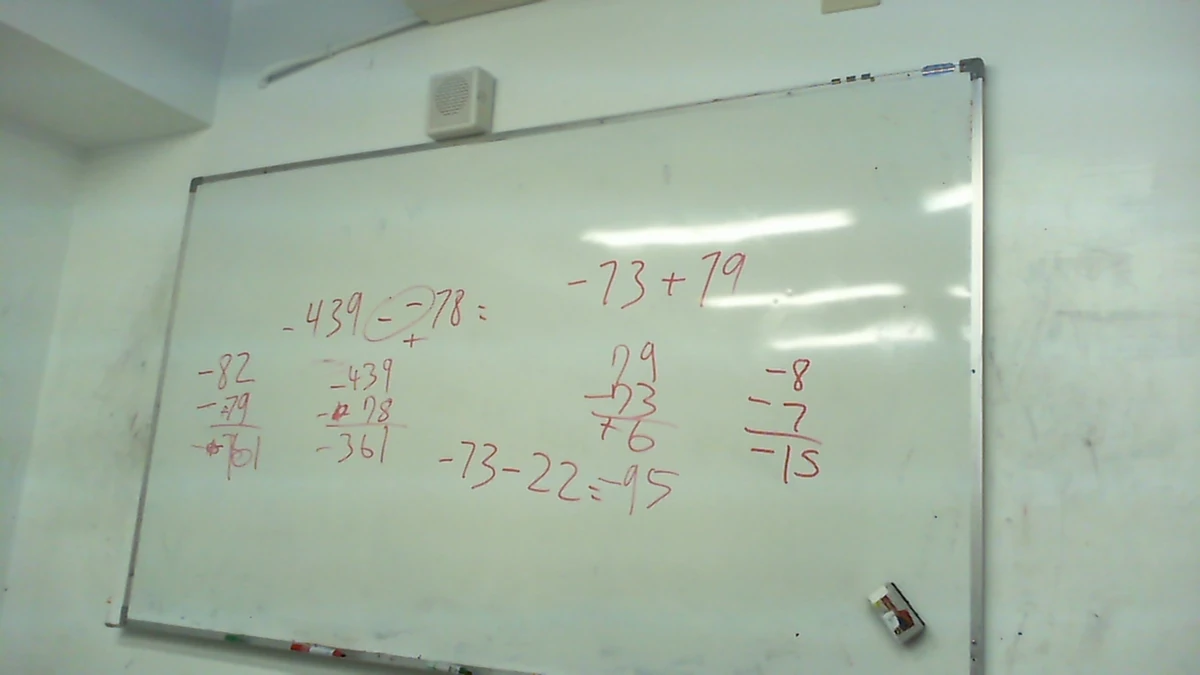 -73+79
-439--78=
+
-82
-79
-161
-439
-78
-361
79
-73
+6
-8
-7
-15
-73-22=-95